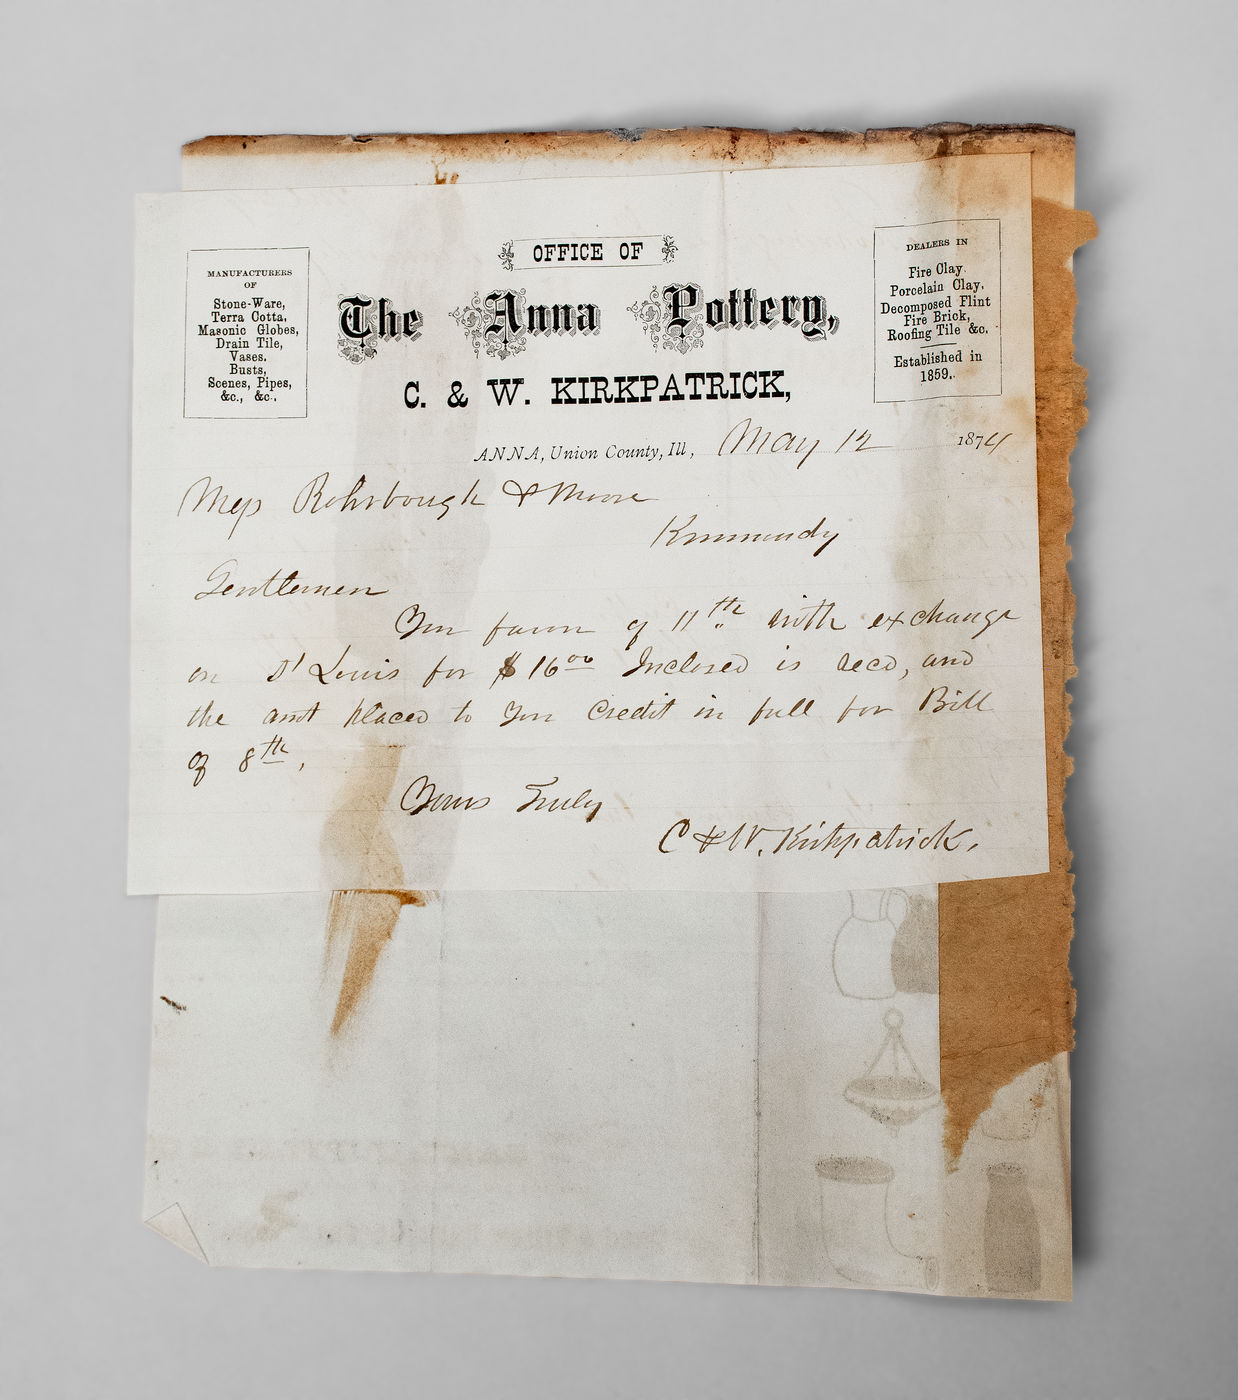 OFFICE OF
The Anna Pottery,
C. & W. KIRKPATRICK,
MANUFACTURERS
OF
Stone-Ware,
Terra Cotta,
Masonic Globes,
Drain Tile,
Vases,
Busts,
Scenes, Pipes,
&c., &c.
DEALERS IN
Fire Clay,
Porcelain Clay,
Decomposed Flint
Fire Brick,
Roofing Tile &c.
Established in
1859.
ANNA, Union County, Ill, May 12 1874
Mess Rohrbough & Moore
Kinmundy
Gentlemen
Your favor of 11th with exchange
on St Louis for $16.00 Inclosed is recd, and
the amt placed to your Credit in full for Bill
of 8th,
Yours Truly
C & W. Kirkpatrick.